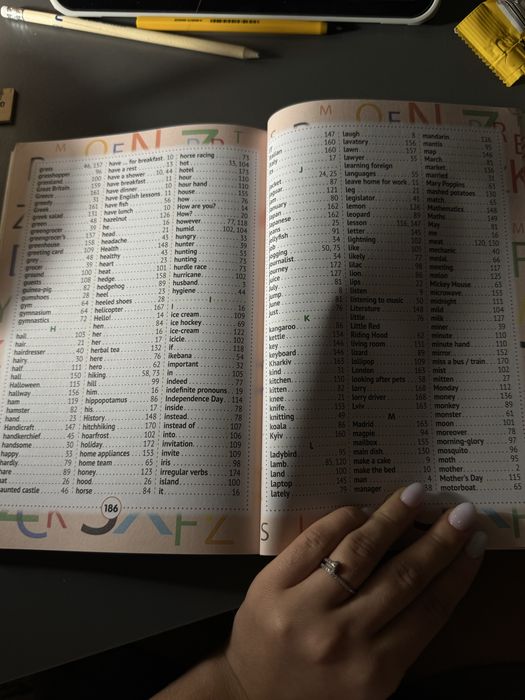 grass 46, 157
grasshopper 96
grassland 100
Great Britain 159
Greece 161
greedy 31
Greek 161
greek salad 131
green 48
greengrocer 39
greengrocer's 137
greenhouse 158
greeting card 109
grey 48
grocer 39
guests
guinea-pig 82
gumshoes 28
gym 64
gymnasium 64
gymnastics 72
H
hail 103
hair 21
hairdresser 40
hairy 30
half 111
hall 150
Halloween 115
hallway 156
ham 119
hamster 82
hand 23
Handicraft 147
handkerchief 45
handsome 30
happy 33
hardly 79
hare 89
hat 26
aunted castle 46
have ... for breakfast 10
have a rest 13
have a shower 10, 44
have breakfast 11
have dinner 10
have English lessons 11
have fish 56
have lunch 10
hazelnut 126
he 16
head 21
headache 43
Health 148
healthy 43
heart 23
heat 101
hedge 158
hedgehog 89
heel 23
heeled shoes 28
helicopter 167
Hello! 14
hen 84
her 16
her 17
herbal tea 132
here 76
hero 62
hiking 58, 73
hill 99
him 16
hippopotamus 86
his 17
History 148
hitchhiking 170
hoarfrost 102
holiday 172
home appliances 153
home team 65
honey 123
hood 26
horse 84
horse racing 73
hot 33, 104
hotel 173
hour 110
hour hand 110
house 155
how 76
How are you? 14
How? 20
however 77, 118
humid 102, 104
hundred 51
hunter 39
hunting 53
hungry 33
hurdle race 73
hurricane 102
husband 3
hygiene 44
I
I 16
ice cream 109
ice hockey 69
ice-cream 122
icicle 102
if 118
ikebana 54
important 32
in 105
indeed 77
Indefinite pronouns 19
Independence Day 114
inside 78
instead 78
instead of 107
into 106
invitation 109
invite 109
Iris 98
irregular verbs 174
island 100
it 16
186
147
160
160
17
J
jacket 24, 25
87
121
jam
january 162
162
jeans 25
jellyfish 91
job 34
jogging 50, 75
journalist 54
journey 172
juice
July
jump
June
just 76
K
kangaroo 86
kettle 154
key 146
keyboard 146
Kharkiv 163
kind 31
kitchen 150
kitten 82
knee 21
knife 153
knitting 49
koala 86
Kyiv 160
L
ladybird 95
lamb 85, 120
lamp 151
land 99
laptop 145
lately 79
laugh 8
lavatory 156
lawn 157
lawyer 35
learning foreign
languages 55
leave home for work 11
leg 21
legislator 41
lemon 128
leopard 89
less
letter 145
lightning 102
like
likely 77
lilac 98
lion
lips 22
listen
listening to music 50
Literature 148
little 76
Little Red
Riding Hood 62
living room 150
lizard 89
lollipop 109
London 163
looking after pets 58
lorry 168
lorry driver 168
Lviv 163
M
Madrid 163
magpie 94
mailbox 155
main dish 130
make a cake 9
make the bed 10
man 4
manager 38
mandarin
mantis 95
map
March
market
married
Mary Poppins
mashed potatoes 131
match 65
Mathematics 148
Maths
May
me 16
meal
meat 120, 130
mechanic 40
medal 66
meeting
melon
Mickey Mouse 63
microwave 153
midnight
mild 104
milk 127
miner 39
minute 110
minute hand 110
mirror 152
miss a bus / train 170
mist 102
mitten 27
Monday 112
money 136
monkey 89
monster 61
moon 101
moreover 78
morning-glory 97
mosquito 96
moth 95
mother 2
Mother's Day 115
motorboat 65